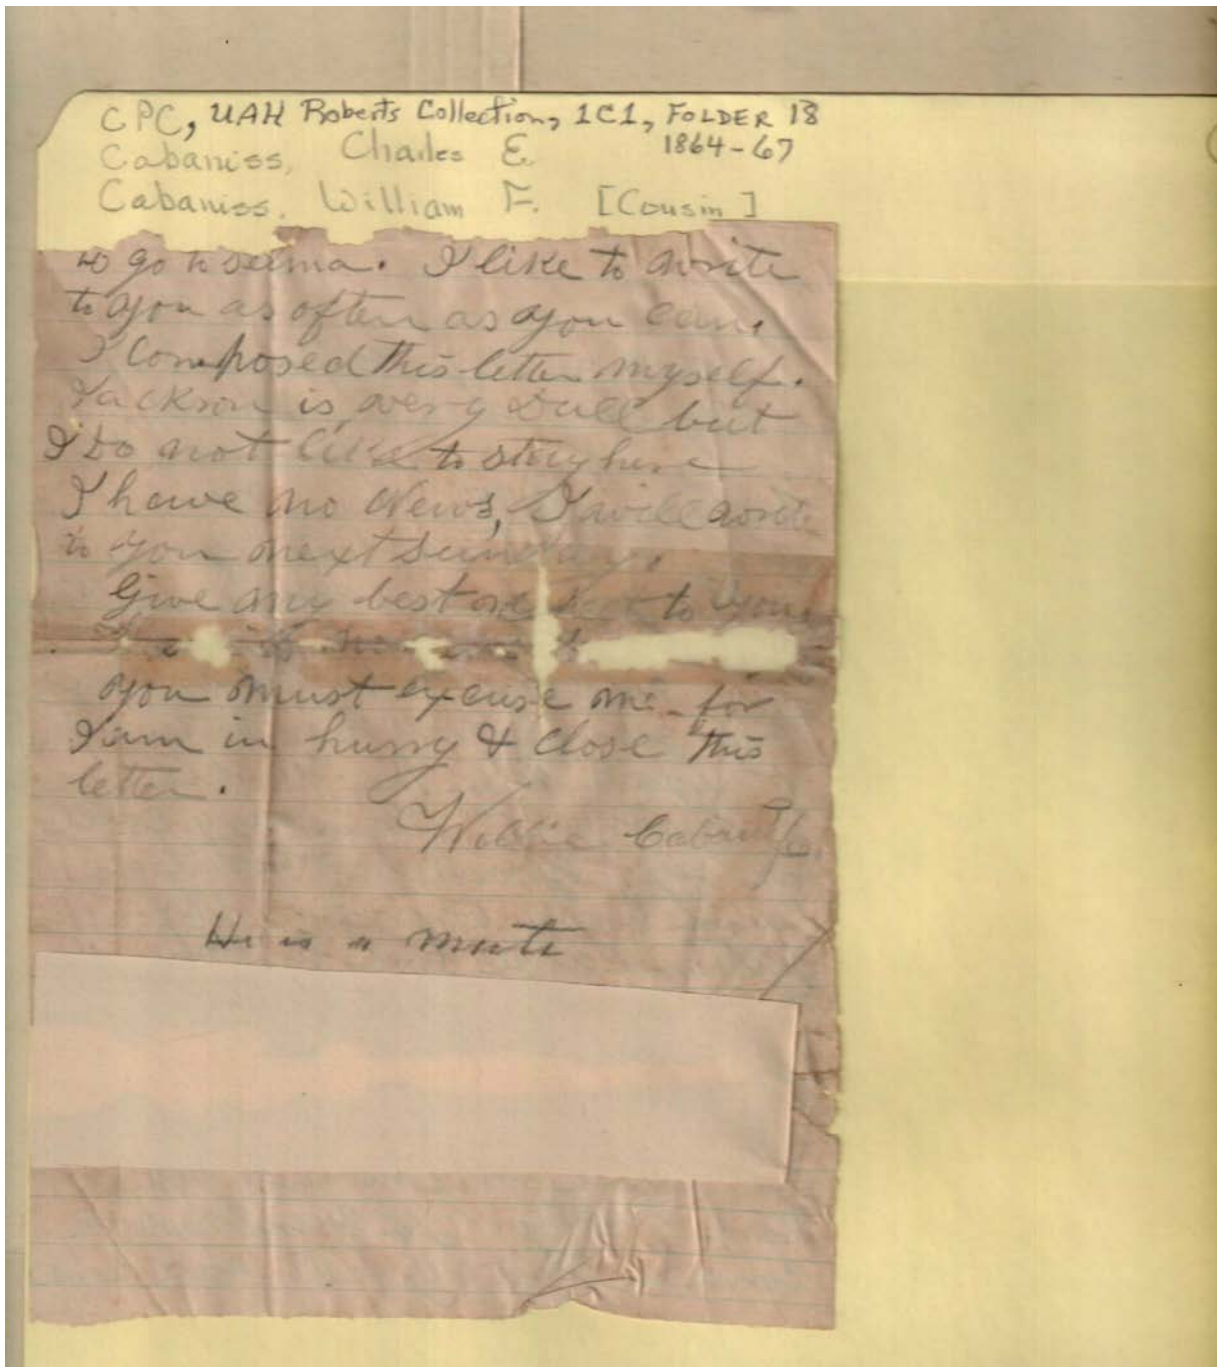 CPC, UAH Roberts Collection, 1C1, FOLDER 18
1864-67
Cabaniss, Charles E.
Cabaniss, William F. [Cousin]
to go to Selma. I like to write
to you as often as you can.
I composed this letter myself.
Jackson is very dull but
I do not like to stay here
I have no News, I will write
to you next Sunday.
Give my best to your
you must excuse me for
I am in hurry & close this
letter.
Willie Cabaniss
He is a mute